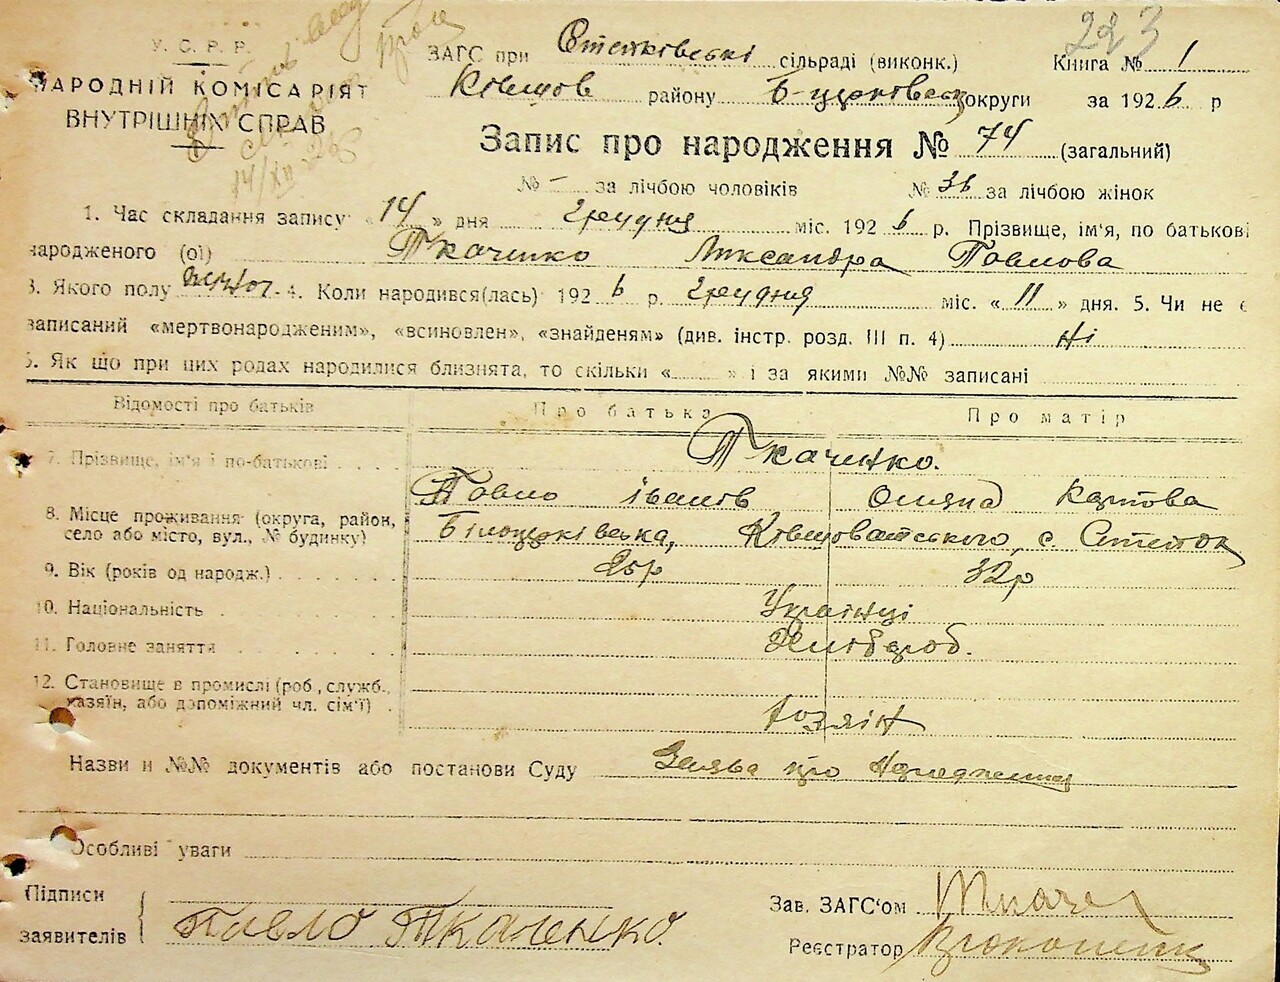 223
У. С. Р. Р.
НАРОДНІЙ КОМІСАРІЯТ
ВНУТРІШНІХ СПРАВ
14/XII 26
ЗАГС при сільраді (виконк.) Книга № 1
Ківшов району Б-церковськ округи за 1926 р
Запис про народження № 74 (загальний)
№ – за лічбою чоловіків № 36 за лічбою жінок
1. Час складання запису «14» дня грудня міс. 1926 р. Прізвище, ім'я, по батькові
народженого (ої) Ткаченко Александра Павлова
3. Якого полу жіноч. 4. Коли народився(лась) 1926 р. грудня міс. «11» дня. 5. Чи не є
записаний «мертвонародженим», «всиновлен», «знайденям» (див. інстр. розд. III п. 4) Ні
6. Як що при цих родах народилися близнята, то скільки « » і за якими №№ записані
Відомості про батьків Про батька Про матір
7. Прізвище, ім'я і по-батькові Ткаченко.
Павло Іванів Олияна Карпова
8. Місце проживання (округа, район,
село або місто, вул., № будинку) Білоцерківська, Ківшоватського, с. Степок
9. Вік (років од народж.) 25р 32р
10. Національність Українці
11. Головне заняття Хлібороб.
12. Становище в промислі (роб., служб.,
хазяїн, або допоміжний чл. сім'ї) Хозяїн
Назви и №№ документів або постанови Суду Заява про народження
Особливі уваги
Підписи
заявителів Павло Ткаченко.
Зав. ЗАГС'ом
Реєстратор